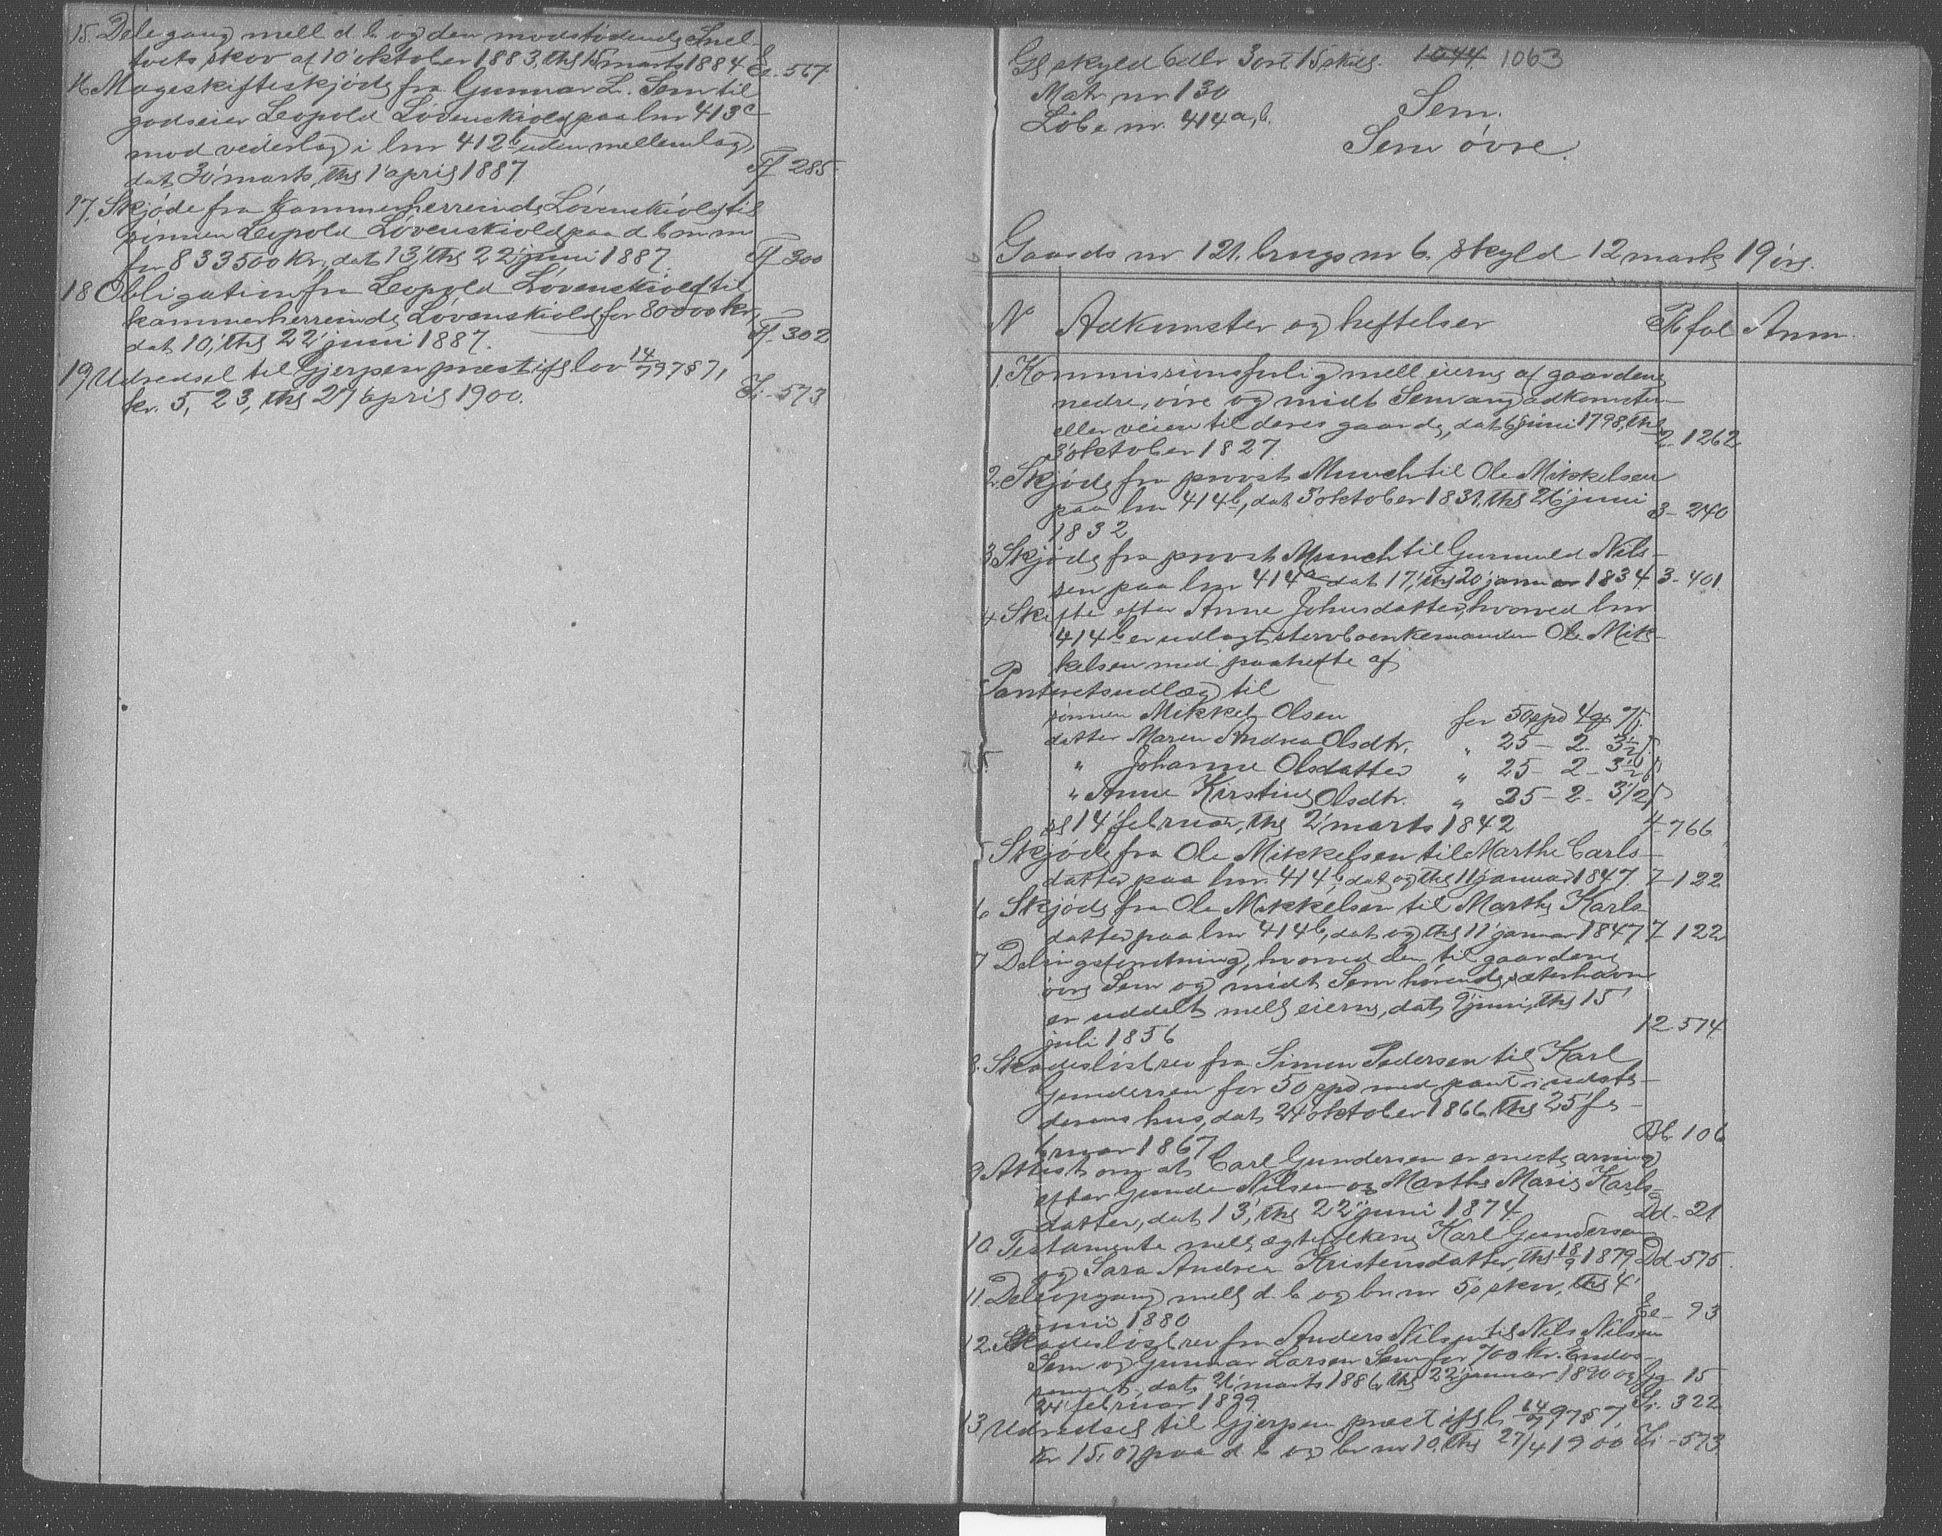 15. Delegang mell d. b. og den modstødende Snel-
tvets skov af 10' oktober 1883, thg 15' marts 1884. Ee- 567
16 Mageskifteskjøde fra Gunnar L. Sem til
godseier Leopold Løvenskiold paa lnr 413c
mod vederlag i lnr 412b uden mellemlag,
dat 30' marts, thg 1' april 1887 Ff 285
17. Skjøde fra kammerherreinde Løvenskiold til
sønnen Leopold Løvenskiold paa d b m m
for 833500 kr, dat 13', thg 22' juni 1887. Ff 300
18 Obligation fra Leopold Løvenskiold til
kammerherreinde Løvenskiold for 80000 kr,
dat 10', thg 22' juni 1887. Ff. 302
19 Udredsel til Gjerpen præst ifg lov 14/7 97 § 7,
kr. 5, 23, thg 27' april 1900. Ii - 573
Gl skyld 6 dlr 3 ort 15 skill. 1044. 1063
Matr nr 130
Løbe nr. 414a,b.
Sem.
Sem øvre.
Gaards nr 121. brugs nr 6. skyld 12 mark 19 øre.
N Adkomster og heftelser P. fol Anm.
1. Kommissionsforlig mell eierne af gaardene
nedre, øvre og midt Sem ang adkomster
eller veien til deres gaarde, dat 6' juni 1798, thg
3' oktober 1827 2- 1262
2. Skjøde fra provst Munch til Ole Mikkelsen
paa lnr 414b, dat 3' oktober 1831, thg 26' juni
1832 3- 240
3 Skjøde fra provst Munch til Gunuld Nils-
sen paa lnr 414a dat 17', thg 20' januar 1834. 3- 401
4 Skifte efter Anne Johnsdatter, hvorved lnr
414b er udlagt stervboenkemanden Ole Mik-
kelsen med paahefte af
Panteretsudlæg til
sønnen Mikkel Olsen for 50 spd 4 ort 7 s.
datter Maren Andrea Olsdtr. " 25 - 2 - 3 1/2 s.
" Johanne Olsdatter " 25 - 2 - 3 1/2 s
" Anne Kirstine Olsdtr. " 25 - 2 - 3 1/2 s
sl 14' februar, thg 2' marts 1842 4- 766
5 Skjøde fra Ole Mikkelsen til Marthe Carls-
datter paa lnr. 414b, dat og thg 11' januar 1847. 7- 122
6 Skjøde fra Ole Mikkelsen til Marthe Karls-
datter paa lnr 414b, dat og thg 11' januar 1847 7- 122
7 Delingsforretning, hvorved den til gaardene
øvre Sem og midt Sem hørende sæterhavn
er uddelt mell eierne, dat 9' juni, thg 15'
juli 1856 12- 574
8. Skadesløsbrev fra Simon Pedersen til Karl
Gundersen for 50 spd med pant i udste-
derens hus, dat 24' oktober 1866, thg 25' fe-
bruar 1867 Bb 106
9 Attest om at Carl Gundersen er eneste arving
efter Gunde Nilsen og Marthe Marie Karls-
datter, dat 13', thg 22' juni 1874. Dd - 21
10. Testamente mell ægtefolkene Karl Gundersen
og Sara Andrea Kristensdatter, thg 18/9 1879 Dd - 575
11. Deleopgang mell d. b og br nr 5s skov, thg 4'
juni 1880 Ee - 93
12. Skadesløsbrev fra Anders Nilsen til Nils Nilsen
Sem og Gunnar Larsen Sem for 700 kr. Endos-
seret, dat 26' marts 1886, thg 22' januar 1890 og Gg 15
24' februar 1899 Ii. 322
13 Udredsel til Gjerpen præst ifg l. 14/7 97 § 7,
kr 15,07 paa d. b og br nr 10, thg 27/4 1900 Ii - 573